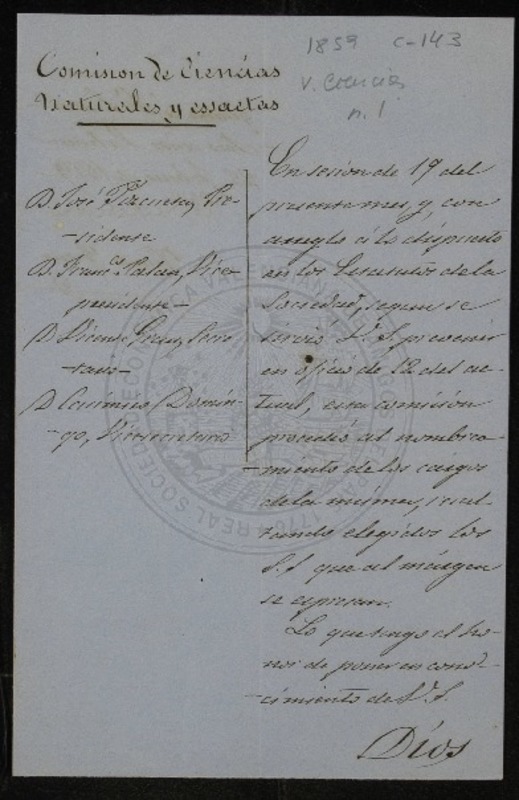 1859 C-143
V. Ciencias
n. 1
Comision de Ciencias
Naturales y essactas
D. José Pre-
-sidente
D. Franco. Vice-
presidente -
D. Vicente Secre-
-tario -
D. Casimiro Domin-
-go, Vicesecretario
En sesion de 19 del
presente mes, y, con
arreglo á lo dispuesto
en los Estatutos de la
Sociedad, segun se
sirvió V. S. prevenir
en oficio de 12 del ac-
tual, esta comision
procedió al nombra-
-miento de los cargos
de la misma, resul-
tando elegidos los
S.S. que al márgen
se espresan.
Lo que tengo el ho-
nor de poner en cono-
-cimiento de V. S.
Dios
REAL SOCIEDAD ECONOMICA VALENCIANA 1776